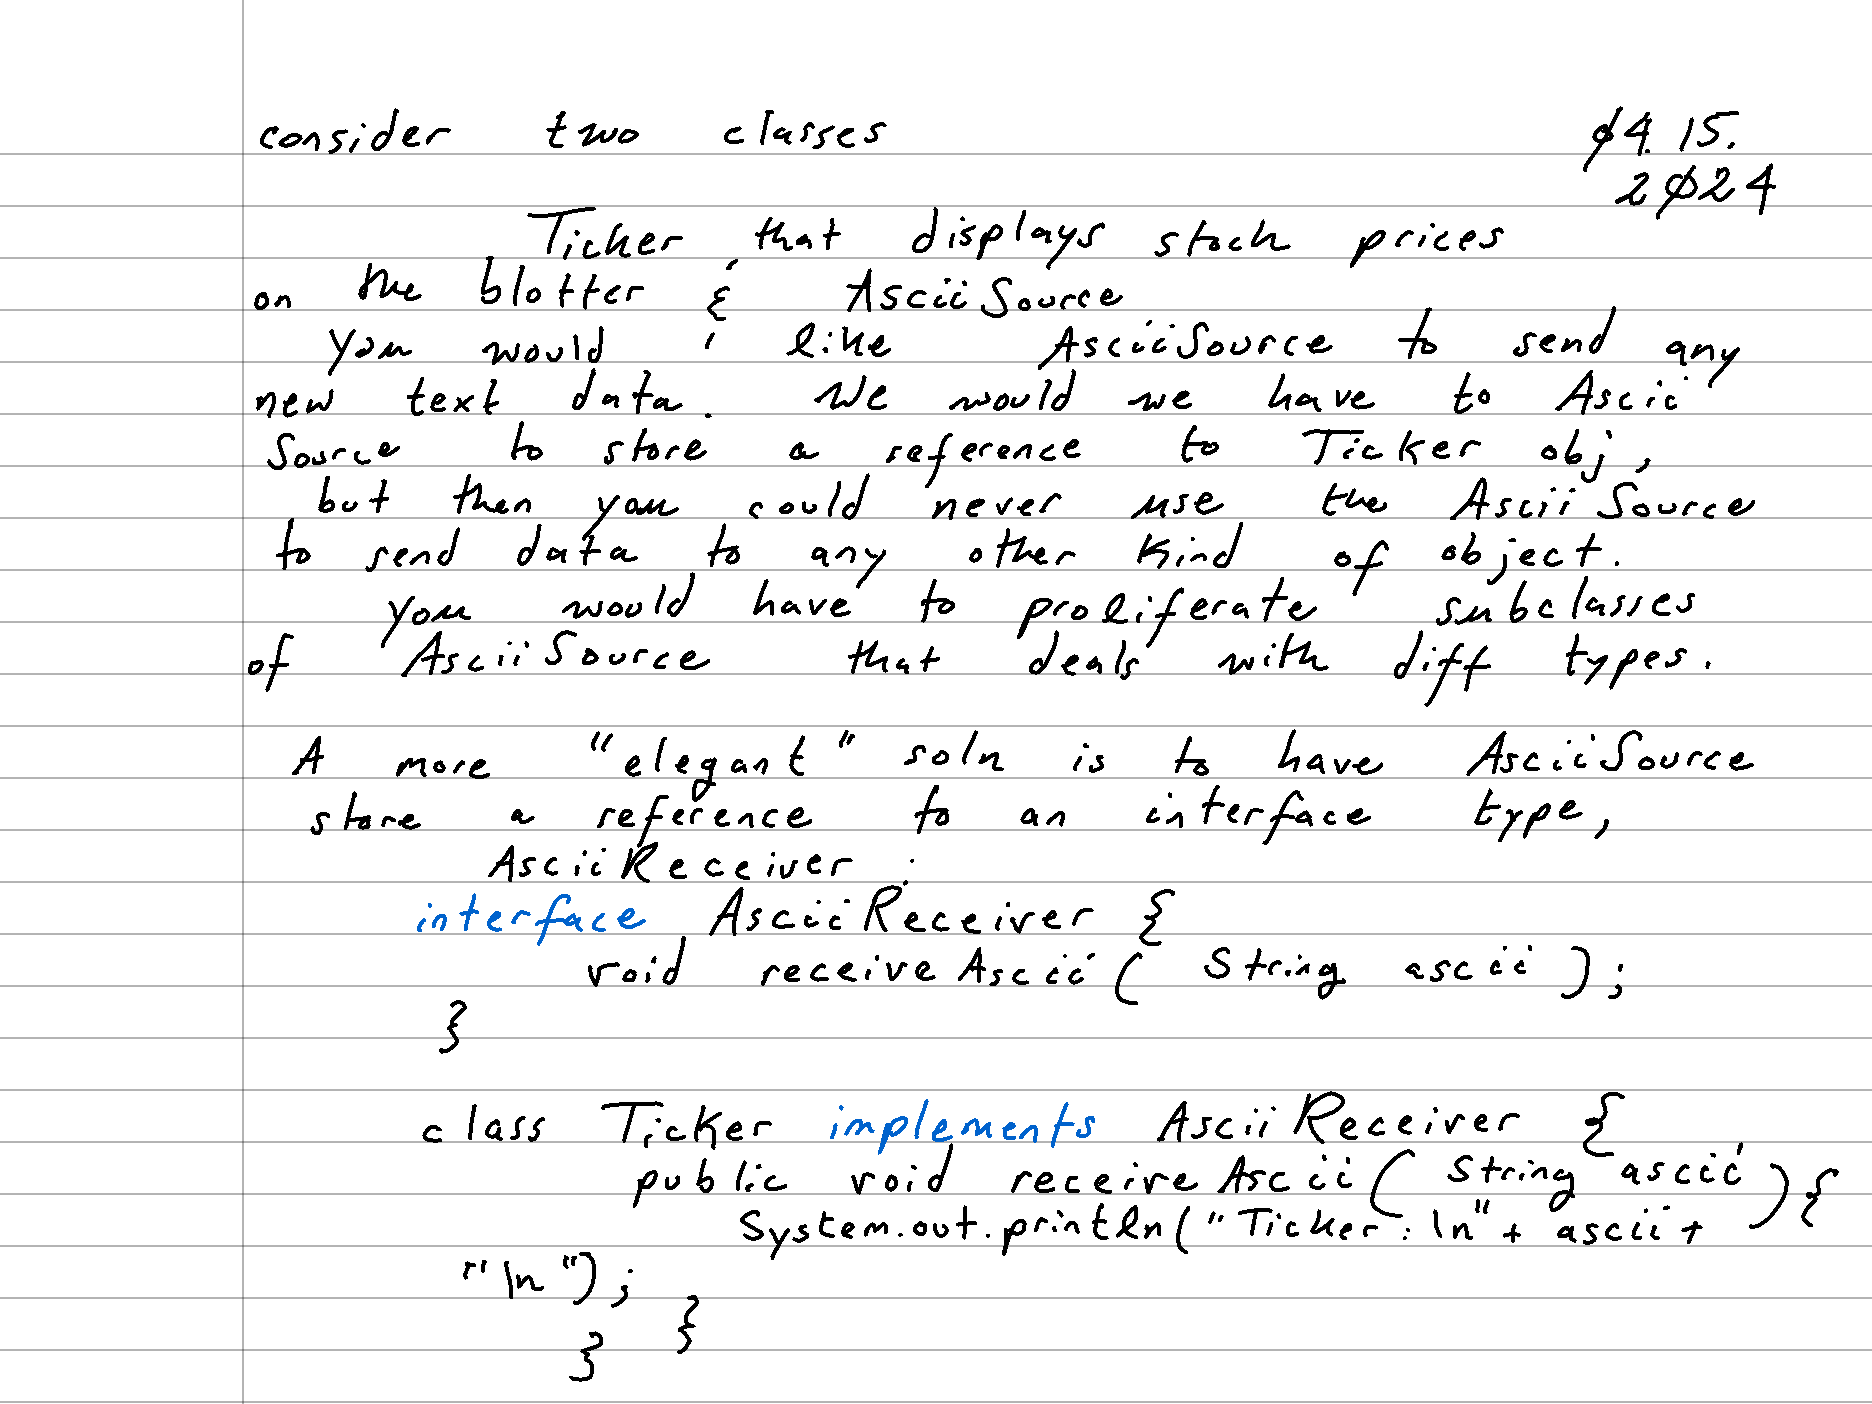 consider two classes 04.15.
2024
Ticker that displays stock prices
on the blotter & AsciiSource
you would like AsciiSource to send any
new text data. We would we have to Ascii
Source to store a reference to Ticker obj,
but then you could never use the AsciiSource
to send data to any other kind of object.
you would have to proliferate subclasses
of AsciiSource that deals with diff types.
A more "elegant" soln is to have AsciiSource
store a reference to an interface type,
AsciiReceiver :
interface AsciiReceiver {
void receiveAscii( String ascii );
}
class Ticker implements AsciiReceiver {
public void receiveAscii( String ascii ){
System.out.println("Ticker:\n"+ ascii +
"\n"); }
}